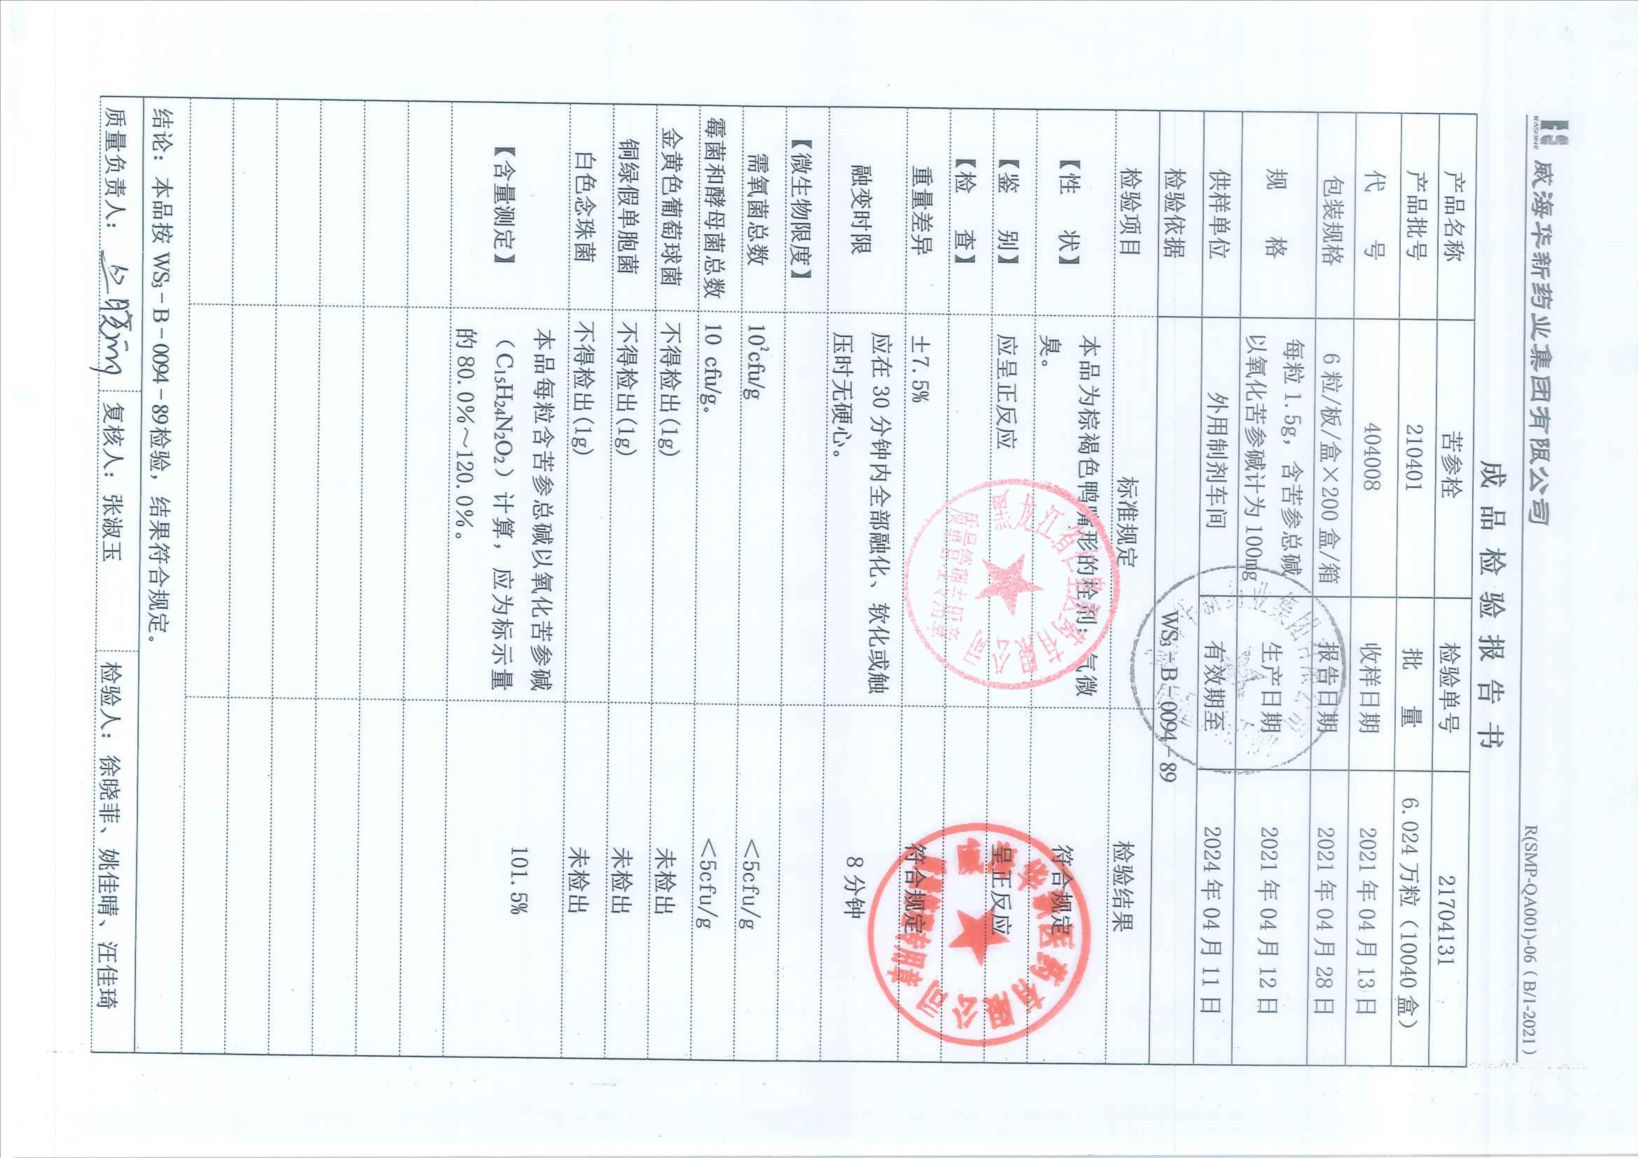 威海华新药业集团有限公司
R(SMP-QA001)-06（B/1-2021）
成品检验报告书
产品名称 苦参栓 检验单号 21704131
产品批号 210401 批 量 6.024 万粒（10040 盒）
代 号 404008 收样日期 2021 年 04 月 13 日
包装规格 6 粒/板/盒×200 盒/箱 报告日期 2021 年 04 月 28 日
规 格 每粒 1.5g，含苦参总碱
以氧化苦参碱计为 100mg 生产日期 2021 年 04 月 12 日
供样单位 外用制剂车间 有效期至 2024 年 04 月 11 日
检验依据 WS₃－B－0094－89
检验项目 标准规定 检验结果
【性 状】 本品为棕褐色鸭嘴形的栓剂；气微
臭。 符合规定
【鉴 别】 应呈正反应 呈正反应
【检 查】
重量差异 ±7.5% 符合规定
融变时限 应在 30 分钟内全部融化、软化或触
压时无硬心。 8 分钟
【微生物限度】
需氧菌总数 10²cfu/g ＜5cfu/g
霉菌和酵母菌总数 10 cfu/g。 ＜5cfu/g
金黄色葡萄球菌 不得检出(1g) 未检出
铜绿假单胞菌 不得检出(1g) 未检出
白色念珠菌 不得检出(1g) 未检出
【含量测定】 本品每粒含苦参总碱以氧化苦参碱
（C₁₅H₂₄N₂O₂）计算，应为标示量
的 80.0%～120.0%。 101.5%
结论：本品按 WS₃－B－0094－89检验，结果符合规定。
质量负责人： 复核人：张淑玉 检验人：徐晓菲、姚佳晴、汪佳琦